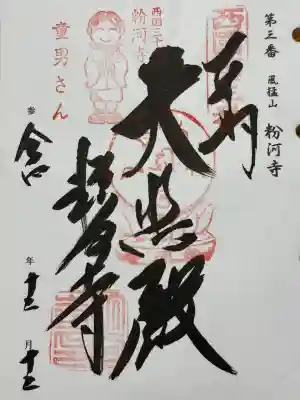 第三番 風猛山 粉河寺
奉拝
大悲殿
粉河寺
西国三十
粉河寺
童男さん
参 令和
年 十二
月 十二